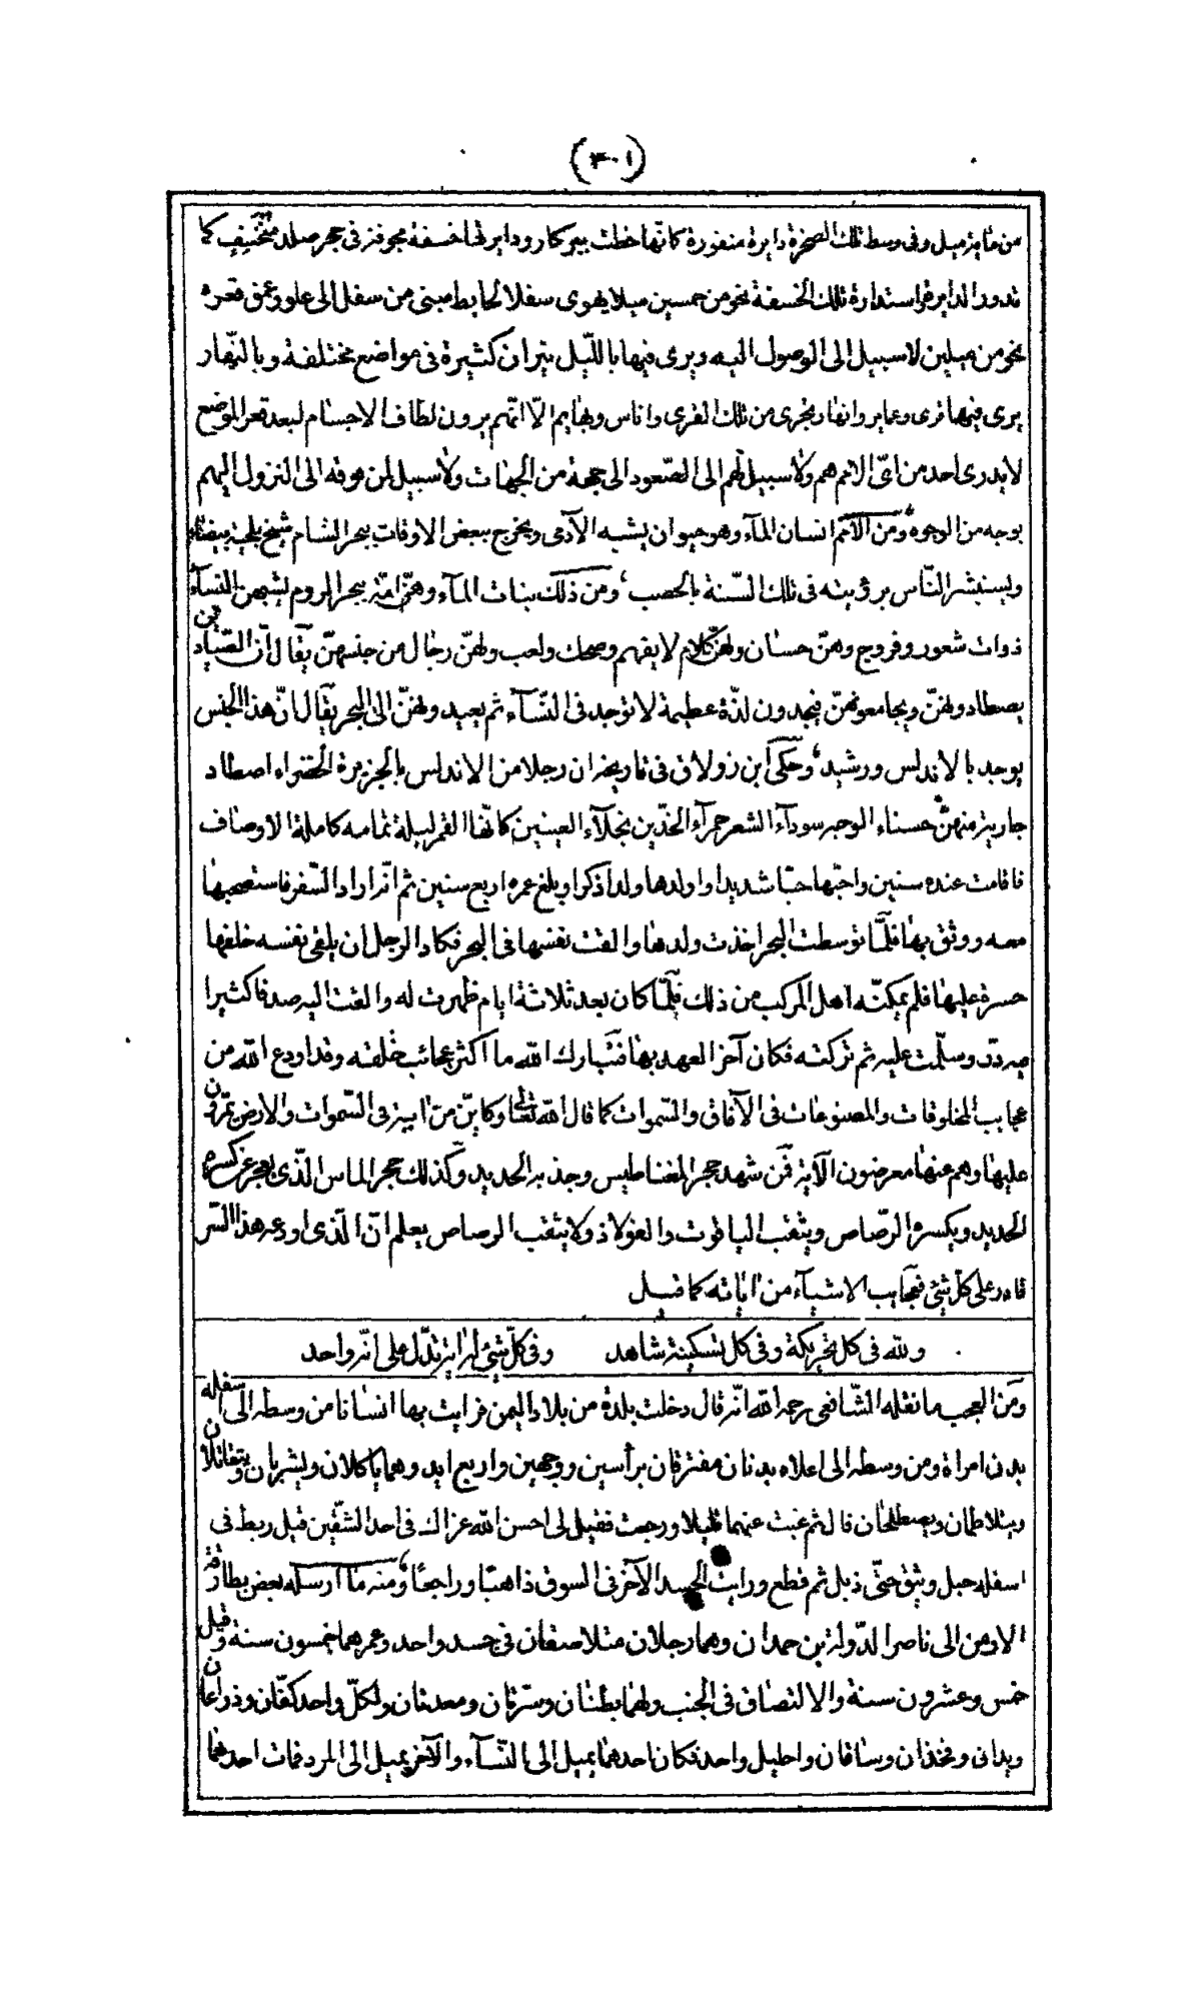 (٣٠١)
من مأية ميل وفى وسط تلك الصخرة دايرة منقورة كانّها خطّت ببركار ودايرتها خسفة مجوفة فى حجر صلد منخسف كما
تدور الدايرة واستدارة تلك الخسفة نحو من خمسين ميلا يهوى سفلا كحايط مبنى من سفل الى علو وعمق قعره
نحو من ميلين لا سبيل الى الوصول اليه ويرى فيها بالليّل نيران كثيرة فى مواضع مختلفة وبالنّهار
يرى فيها قرى وعماير وانهار تجرى من تلك القرى واناس وبهايم الّا انّهم يرون لطاف الاجسام لبعد قعر الموضع
لا يدرى احد من اىّ الامم هم ولا سبيل لهم الى الصّعود الى جهة من الجهات ولا سبيل لمن فوقه الى النزول اليهم
بوجه من الوجوه ومن الامم انسان المآء وهو حيوان يشبه الآدمى ويخرج ببعض الاوقات ببحر الشام شيخ بلحية بيضاء
ويستبشر النّاس برؤيته فى تلك السّنة بالخصب ومن ذلك بنات المآء وهنّ امّة ببحر الروم يشبهن النسآء
ذوات شعور وفروج وهنّ حسان ولهنّ كلام لا يفهم وضحك ولعب ولهنّ رجال من جنسهنّ يقال انّ الصّيادين
يصطادونهنّ ويجامعونهنّ فيجدون لذّة عظيمة لا توجد فى النّسآء ثم يعيدونهنّ الى البحر يقال انّ هذا الجنس
يوجد بالاندلس ورشيد وحكى ابن زولاق فى تاريخه ان رجلا من الاندلس بالجزيرة الخضراء اصطاد
جارية منهنّ حسناء الوجه سودآء الشعر حمرآء الخدّين نجلآء العينين كانّها القمر ليلة تمامه كاملة الاوصاف
فاقامت عنده سنين واحبّها حبّا شديدا واولدها ولدا ذكرا وبلغ عمره اربع سنين ثم انّه اراد السّفر فاستصحبها
معه ووثق بها فلمّا توسطت البحر اخذت ولدها والقت نفسها فى البحر فكاد الرجل ان يلقى نفسه خلفها
حسرة عليها فلم يمكنّه اهل المركب من ذلك فلمّا كان بعد ثلاثة ايام ظهرت له والقت اليه صدفا كثيرا
فيه درّ وسلّمت عليه ثم تركته فكان آخر العهد بها فتبارك الله ما اكثر عجائب خلقه وقد اودع الله من
عجايب المخلوقات والمصنوعات فى الآفاق والسّموات كما قال الله تعالى وكايّن من اية فى السّموات والارض يمرّون
عليها وهم عنها معرضون الآية فمن شهد حجر المغناطيس وجذبه الحديد وكذلك حجر الماس الّذى يعجز عن كسره
الحديد ويكسره الرّصاص ويثقب الياقوت والفولاذ ولا يثقب الرصاص يعلم انّ الّذى اودعه هذا السّر
قادر على كلّ شئ فعجايب الاشيآء من اياته كما قيل
ولله فى كل تحريكة وفى كل تسكينة شاهد وفى كلّ شئ له اية تدّل على انّه واحد
ومن العجب ما نقله الشّافعى رحمه الله انّه قال دخلت بلدة من بلاد اليمن فرايت بها انسانا من وسطه الى اسفله
بدن امراة ومن وسطه الى اعلاه بدنان مفترقان برأسين ووجهين واربع ايد وهما ياكلان ويشربان ويتقاتلان
ويتلاطمان ويصطلحان قال ثم غبت عنهما قليلا ورجعت فقيل لى احسن الله عزاك فى احد الشقّين قيل ربط فى
اسفله حبل وثيق حتّى ذبل ثم قطع ورايت الجسد الآخر فى السوق ذاهبًا وراجعًا ومنه ما ارسله بعض بطارقة
الارمن الى ناصر الدّولة بن حمدان وهما رجلان متلاصقان فى جسد واحد وعمرهما خمسون سنة وقيل
خمس وعشرون سنة والالتصاق فى الجنب ولهما بطنان وسرّتان ومعدتان ولكلّ واحد كفّان وذراعان
ويدانى وفخذان وساقان واحليل واحد فكان احدهما يميل الى النّسآء والآخر يميل الى المرد فمات احدهما